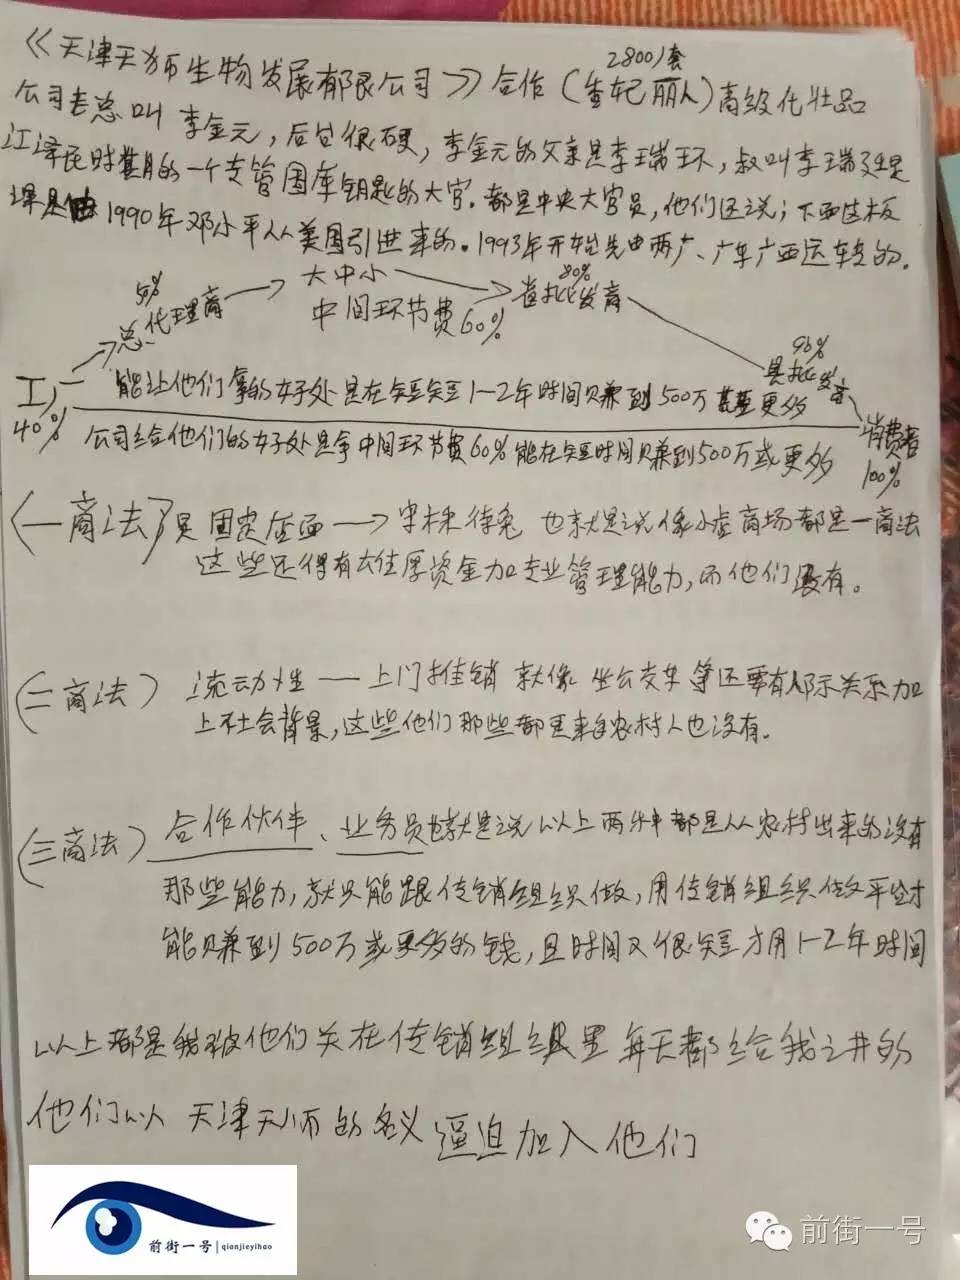 2800/套
《天津天狮生物发展有限公司》合作(蚕妃丽人)高级化壮品
公司老总叫 李金元，后台很硬，李金元的父亲是李瑞环，叔叫李瑞
江泽民时其月的一个支管国库钥匙的大官。都是中央大官员，他们还说；下面这板
1990年邓小平从美国引进来的。1993年开始先由两广、广东广西运转的。
50%
总代理商
大中小
中间环节费60%
80%
省批发商
90%
县批发商
工厂
40%
能让他们拿的好处是在短短1-2年时间赚到500万甚至更多
公司给他们的好处是拿中间环节费60%能在短时间赚到500万或更多
消费者
100%
(一商法) 固定店面 → 守株待兔 也就是说像小 商场都是一商法
这些还得有雄厚资金加专业管理能力，而他们没有。
(二商法) 流动性 — 上门推销 就像坐公交车等还要有人际关系加
上社会背景，这些他们那些都是来自农村人也没有。
(三商法) 合作伙伴、业务员也就是说以上两件都是从农村出来的没有
那些能力，就只能跟传销组织做，用传销组织做平台才
能赚到500万或更多的钱，且时间又很短才用1-2年时间
以上都是我被他们关在传销组织里每天都给我 的
他们以天津天师的名义逼迫加入他们
前街一号 | qianjieyihao
前街一号